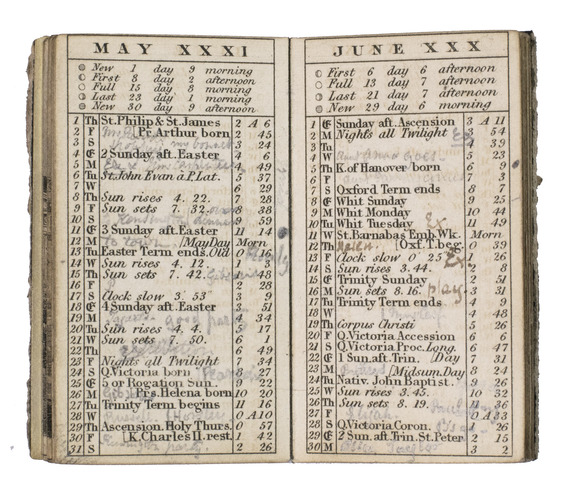 MAY XXXI
New 1 day 9 morning
First 8 day 2 afternoon
Full 15 day 8 morning
Last 23 day 1 morning
New 30 day 9 afternoon
1 Th St. Philip & St. James 2 A 6
2 F [Pr Arthur born 2 45
3 S 3 24
4 E 2 Sunday aft. Easter 4 6
5 M 4 49
6 Tu St. John Evan à P. Lat. 5 37
7 W 6 29
8 Th Sun rises 4. 22. 7 28
9 F Sun sets 7. 32. 8 38
10 S 9 59
11 E 3 Sunday aft. Easter 11 14
12 M To town [May Day Morn
13 Tu Easter Term ends. Old 0
14 W Sun rises 4. 12.
15 Th Sun sets 7. 42. 48
16 F 2 28
17 S Clock slow 3' 53" 3 9
18 E 4 Sunday aft. Easter 3 51
19 M 4 34
20 Tu Sun rises 4. 4. 5 17
21 W Sun sets 7. 50. 6 1
22 Th 6 49
23 F Nights all Twilight 7 34
24 S Q. Victoria born 27
25 E 5 or Rogation Sun. 9 22
26 M Prs. Helena born 10 20
27 Tu Trinity Term begins 11 16
28 W 0 A 10
29 Th Ascension. Holy Thurs. 0 57
30 F [K. Charles II. rest. 1 42
31 S 2 26
JUNE XXX
First 6 day 6 afternoon
Full 13 day 7 afternoon
Last 21 day 7 afternoon
New 29 day 6 morning
1 E Sunday aft. Ascension 3 A 11
2 M Nights all Twilight 3 54
3 Tu 4 39
4 W 5 23
5 Th K. of Hanover born 6 9
6 F 7 3
7 S Oxford Term ends 8 7
8 E Whit Sunday 9 25
9 M Whit Monday 10 44
10 Tu Whit Tuesday 11 49
11 W St. Barnabas Emb. Wk. Morn
12 Th [Oxf. T. beg. 0 39
13 F Clock slow 0' 25" 1 26
14 S Sun rises 3. 44. 2 8
15 E Trinity Sunday 2 51
16 M Sun sets 8. 16. play 3 31
17 Tu Trinity Term ends 4 9
18 W 4 48
19 Th Corpus Christi 5 26
20 F Q. Victoria Accession 6 6
21 S Q. Victoria Proc. Long. 6 47
22 E 1 Sun. aft. Trin. [Day 7 31
23 M [Midsum. Day 8 24
24 Tu Nativ. John Baptist. 9 26
25 W Sun rises 3. 45. 10 32
26 Th Sun sets 8. 19. 11 36
27 F 0 A 33
28 S Q. Victoria Coron. 26
29 E 2 Sun. aft. Trin. St. Peter 2 15
30 M 3 2